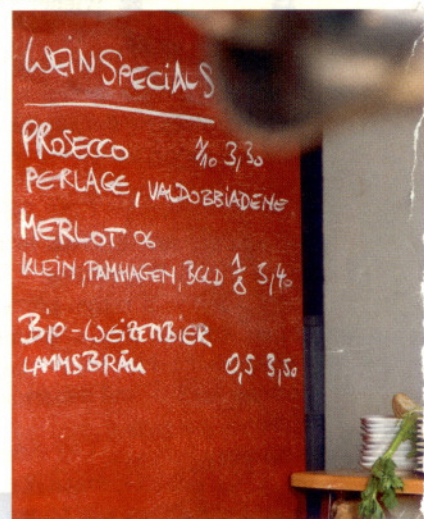 WEIN SPECIALS
PROSECCO 1/10 3,30
PERLAGE, VALDOBBIADENE
MERLOT 06
KLEIN, PAMHAGEN, BGLD 1/8 3,40
BIO-WEIZENBIER
LAMMSBRÄU 0,5 3,50